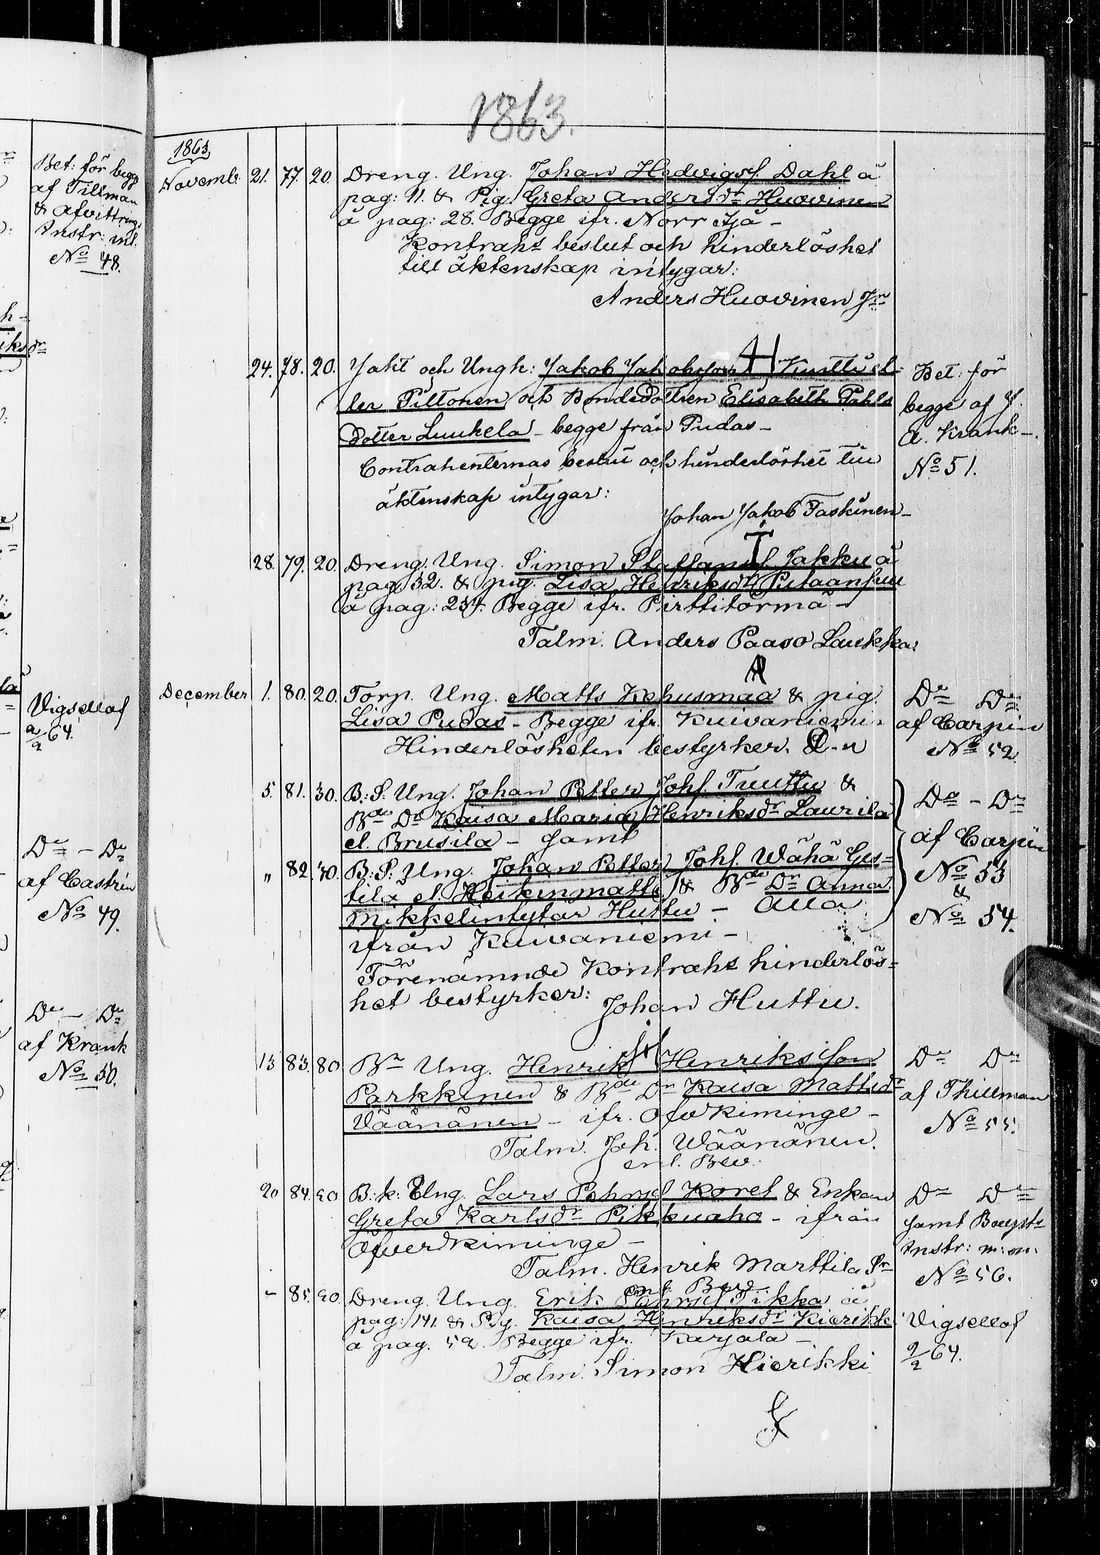 1863.
1863.
Bet: för begge
af Tillman
& Afvittrings
Instr: inl.
No 48.
Novemb: 21. 77. 20. Dreng. Ung. Johan Hedvigsf. Dahl å
pag: 11. & Pig. Greta Andersdr Huovinen
å pag: 28. Begge ifr. Norr Sjä -
Kontrahs beslut och hinderlöshet
till äktenskap intygar:
Anders Huovinen Jr
24. 78. 20. Jakt och Ungk: Jakob Jakobsson Kurttu el-
ler Piltonen och BondeDottren Elisabeth Påhls
Dotter Luukela - begge från Pudas -
Contrahenternas beslut och hinderlöshet till
äktenskap intygar:
Johan Jakob Taskinen -
Bet: för
begge af J.
A. Krank -
No 51.
28. 79. 20. Dreng. Ung. Simon Staffansf Jakku å
pag: 32. & pig. Lisa Henriksdr
å pag: 234. Begge ifr. Perttitörmä -
Talm. Anders Paaso Laukka:
December 1. 80. 20. Torp. Ung. Matts Kehusmaa & pig.
Lisa Pudas - Begge ifr. Kuivaniemi
Hinderlösheten bestyrker. D. u
Dn Dn
af Carpén
No 52
Vigsel af
2/2 64.
5. 81. 30. B: S. Ung. Johan Petter Johsf Tuuttu &
Bde Dr Kaisa Maria Henriksdr Laurila
el. Brusila - samt
" 82. 30. B: S. Ung. Johan Petter Johsf. Wähä Ges-
tila el. Heikinmatti & Bde Dr Anna
Mikkelintytär Huttu - Alla
ifrån Kuivaniemi -
Förenämnde Kontrahs hinderlös-
het bestyrker: Johan Huttu.
Do - Dn
af Carpén
No 53
&
No 54.
Dn - Dn
af Castrén
No 49.
Dn - Dn
af Krank
No 50.
13 83. 80 Bn Ung. Henrik Henriksson
Parkkinen & Bde Dr Kaisa Mattsdr
Väänänen - ifr. Öfv Kiminge -
Talm. Joh. Wäänänen.
enl. Bev.
Dn Dn
af Thillman
No 55.
20 84. 90 B: k: Ung. Lars Pehrsf Koret & Enkan
Greta Karlsdr Pikkuaho - ifrån
ÖfverKiminge -
Talm. Henrik Marttila Sr
enl. Bevd.
Dn Dn
samt Bouppt:
Instr: m: m:
No 56.
- 85. 90. Dreng. Ung. Erik Pehrsf Tikka å
pag: 141. & Pig. Kaisa Henriksdr Kierikki
å pag. 52. Begge ifr. Karjala -
Talm. Simon Kierikki
Vigsel af
2/2 64.